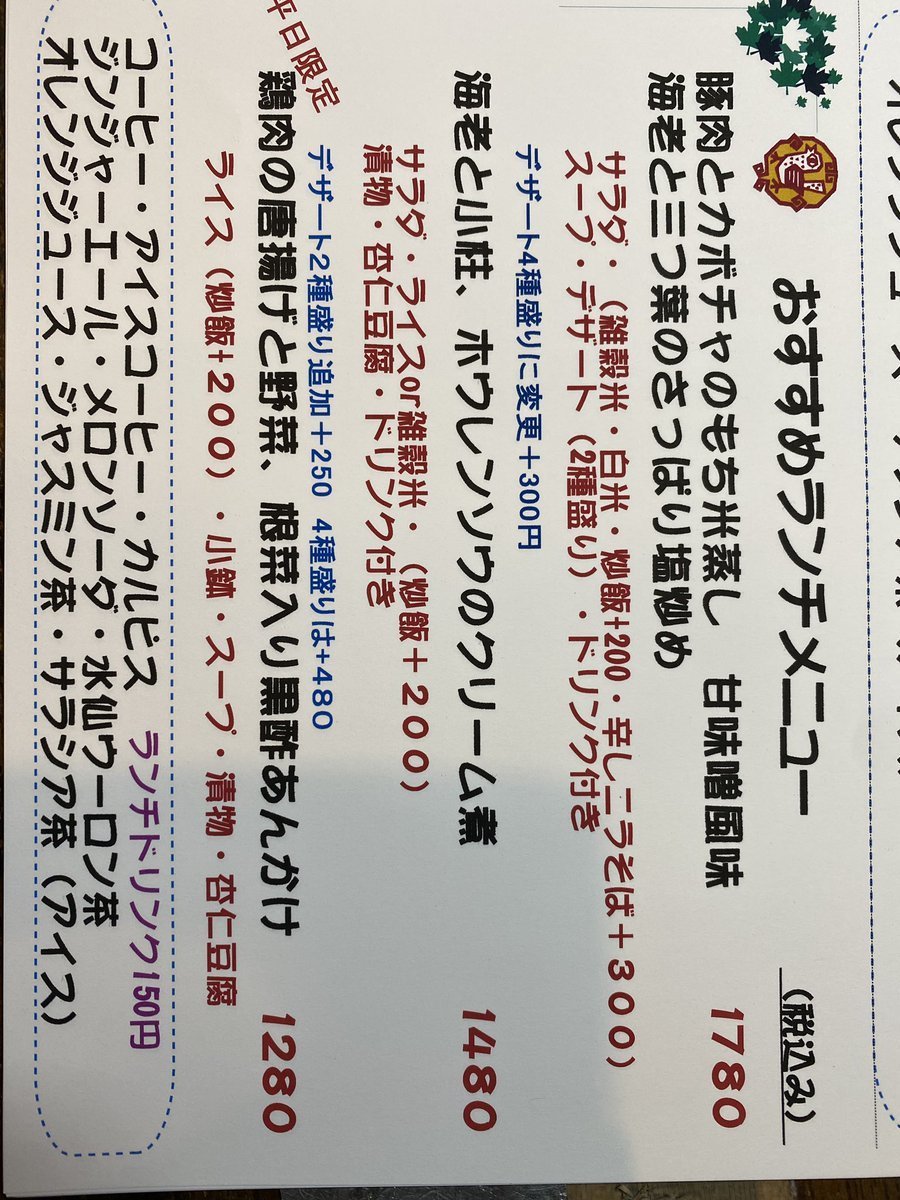 おすすめランチメニュー
(税込み)
豚肉とカボチャのもち米蒸し 甘味噌風味
海老と三つ葉のさっぱり塩炒め
1780
サラダ・(雑穀米・白米・炒飯+200・辛しニラそば+300)
スープ・デザート(2種盛り)・ドリンク付き
デザート4種盛りに変更+300円
海老と小柱、ホウレンソウのクリーム煮
1480
サラダ・ライスor雑穀米・(炒飯+200)
漬物・杏仁豆腐・ドリンク付き
デザート2種盛り追加+250 4種盛りは+480
平日限定
鶏肉の唐揚げと野菜、根菜入り黒酢あんかけ
1280
ライス(炒飯+200)・小鉢・スープ・漬物・杏仁豆腐
ランチドリンク150円
コーヒー・アイスコーヒー・カルピス
ジンジャーエール・メロンソーダ・水仙ウーロン茶
オレンジジュース・ジャスミン茶・サラシア茶(アイス)